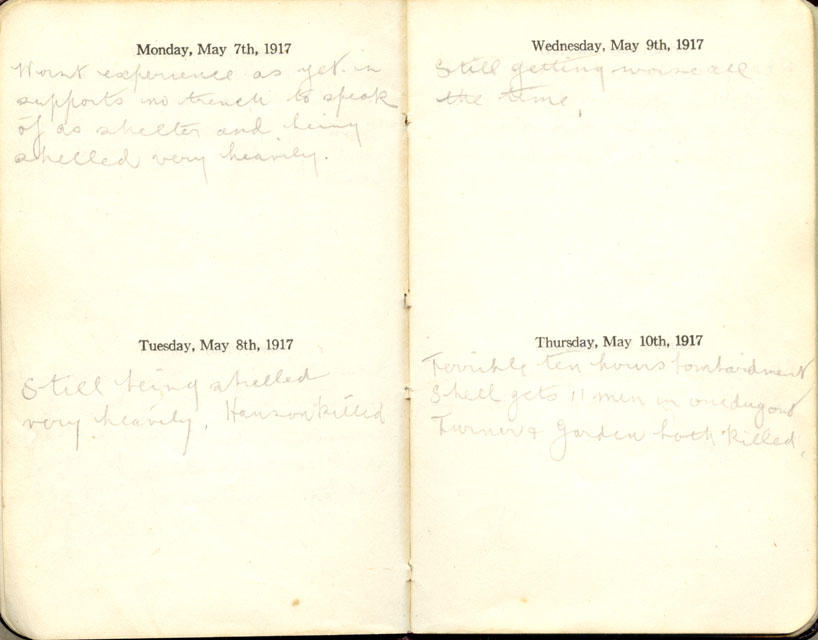 Monday, May 7th, 1917
Worst experience as yet in
supports no trench to speak
of as shelter and being
shelled very heavily.
Tuesday, May 8th, 1917
Still being shelled
very heavily. Hanson killed
Wednesday, May 9th, 1917
Still getting worse all
the time.
Thursday, May 10th, 1917
Terrible ten hours bombardment
Shell gets 11 men in one dugout
Turner & Garden both killed.